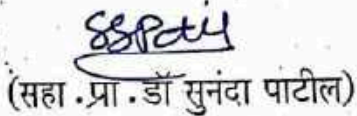 SSPatil
(सहा.प्रा.डॉ सुनंदा पाटील)